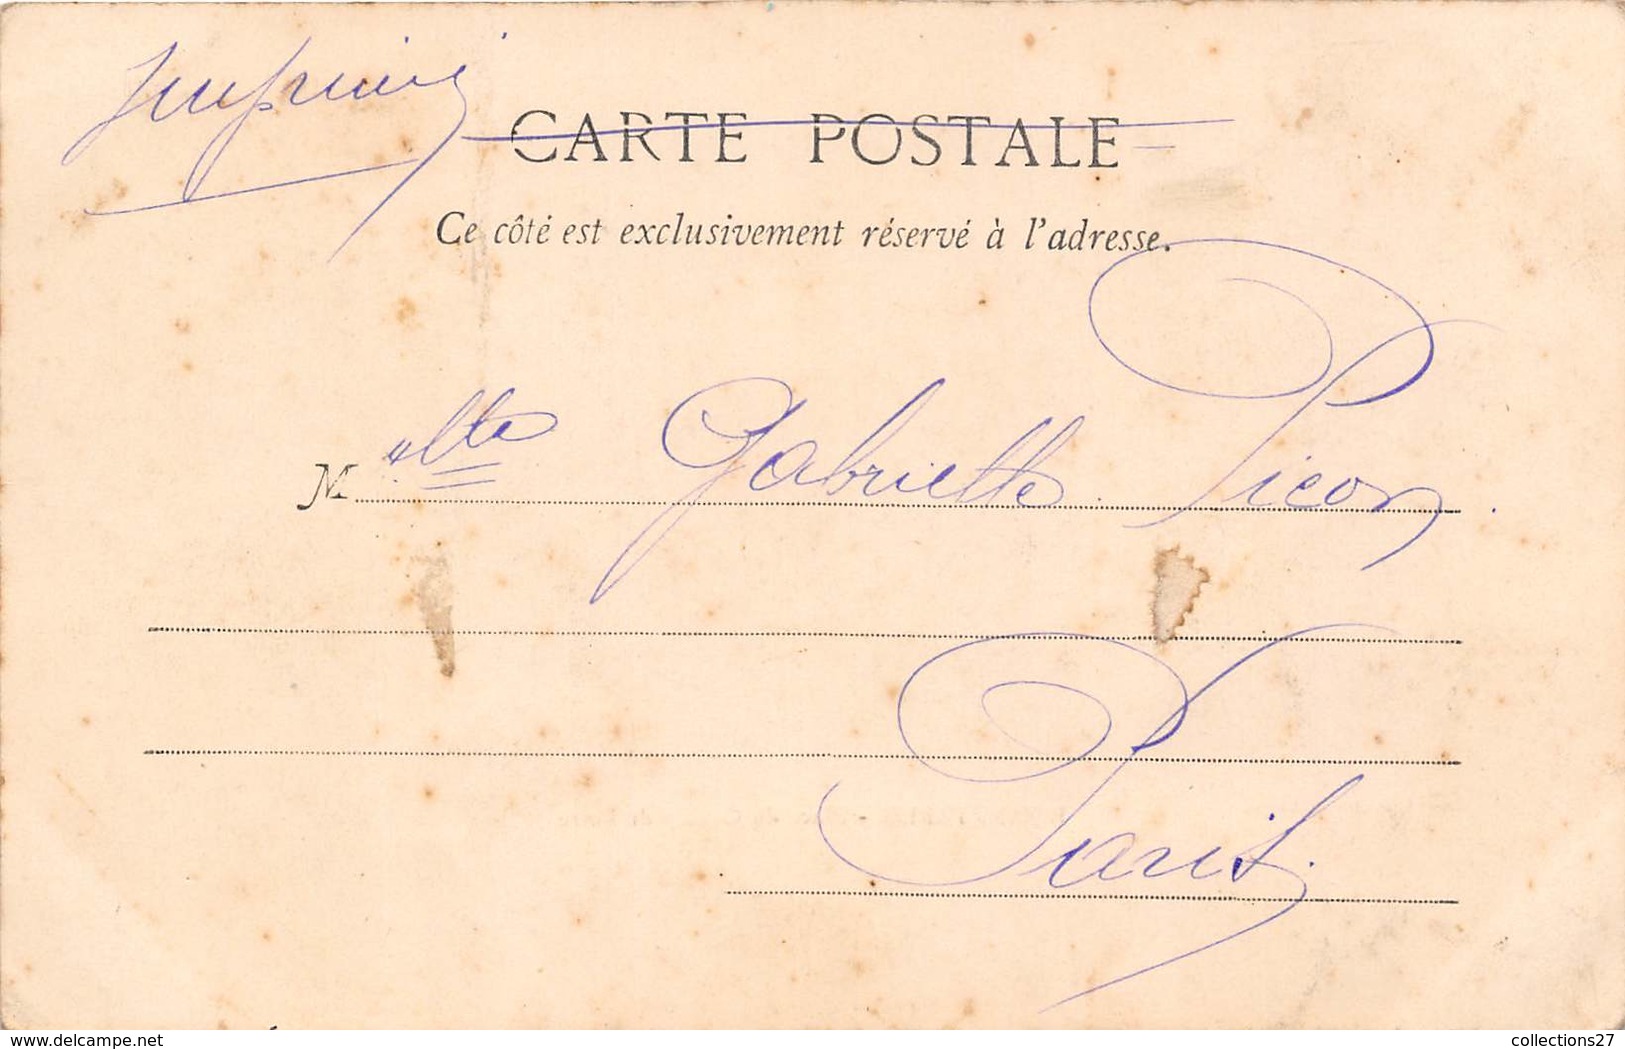 Imprimé
CARTE POSTALE
Ce côté est exclusivement réservé à l'adresse.
Melle Gabrielle Picon.
Paris.
delcampe.net
collections27